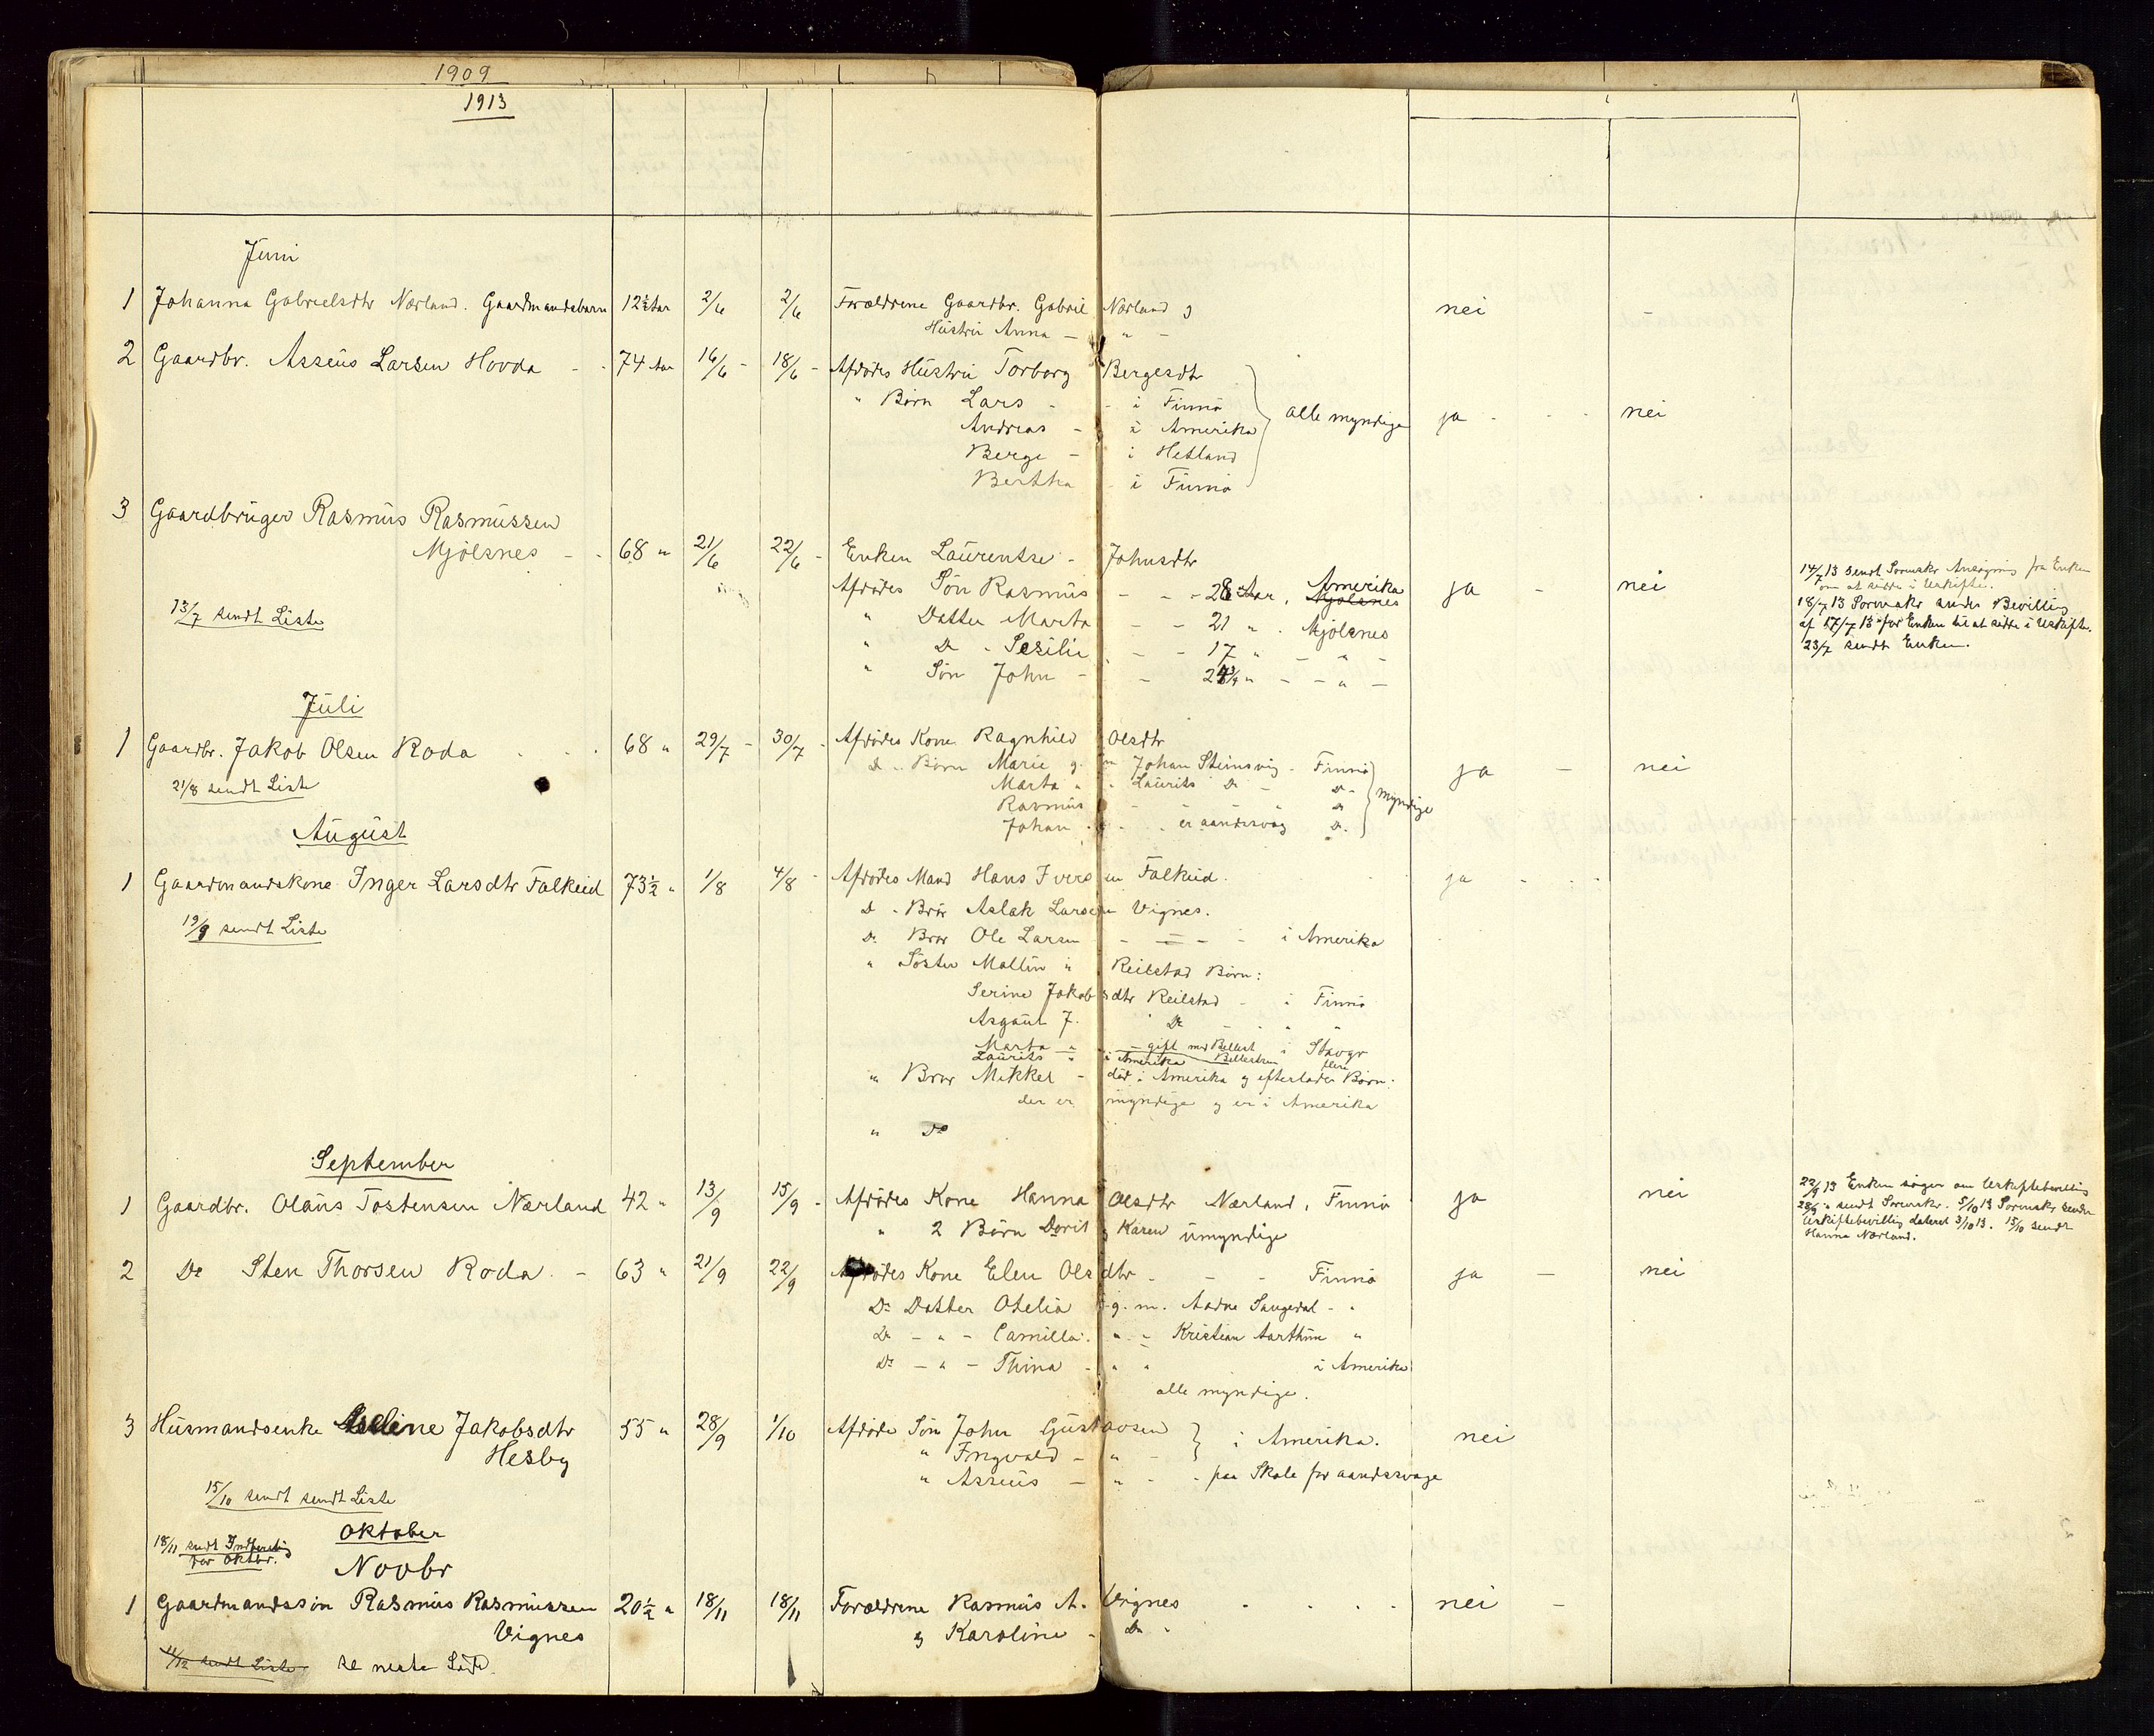 1909
1913
Juni
1 Johanna Gabrielsdtr Nærland. Gaardmandsbarn 12½ Aar 2/6 2/6 Forældrene Gaardbr. Gabriel Nærland og nei
Hustru Anna — " -
2 Gaardbr. Asseus Larsen Hovda - - 74 Aar 16/6 - 18/6 - Afdødes Hustru Torborg Bergesdtr
" Børn Lars - - i Finnö alle myndige ja - - - nei
Andreas - i Amerika
Berge - i Hetland
Bertha - i Finnö
3 Gaardbruger Rasmus Rasmussen
Mjölsnes - - 68 " 21/6 22/6 - Enken Laurentse - Johnsdtr
Afdødes Søn Rasmus - - - 28 Aar, Mjölsnes Amerika ja - nei
14/7 13 sendt Sorenskr Ansøgning fra Enken
om at sidde i Uskifte.
18/7 13 Sorenskr sender Bevilling
af 17/7 13 for Enken til at sidde i Uskifte.
23/7 sendt Enken.
13/7 sendt Liste
" Datter Marta - - 21 " . Mjölsnes
" Do - Sesilie - - 17 " - " -
" Søn John - - " - - " -
Juli
1 Gaardbr. Jakob Olsen Roda - - - 68 " 29/7 - 30/7 - Afdødes Kone Ragnhild Olsdtr
D - Børn Marie g. m Johan Steinsvig - Finnö ja - nei
21/8 sendt Liste
Marta " " Laurits Do - Do - myndige
Rasmus - - Do
Johan - - - er aandssvag Do.
August
1 Gaardmandskone Inger Larsdtr Falkeid 73½ " 1/8 4/8 - Afdødes Mand Hans Iversen Falkeid. ja - - -
D - Bror Aslak Larsen Vignes.
19/9 sendt Liste
Do Bror Ole Larsen - - - - i Amerika
" Søster Mallin " Reilstad Børn:
Serine Jakobsdtr Reilstad - i Finnö
Asgaut J. Do - " "
Marta " - gift med i Stavgr
Laurits " i Amerika
" Bror Mikkel - død i Amerika og efterlader flere Børn.
der er myndige og er i Amerika
" Do
September
1 Gaardbr. Olaus Tostensen Nærland 42 " 13/9 15/9 - Afdødes Kone Hanna Olsdtr Nærland, Finnö ja nei
22/9 13 Enken søger om Uskiftebevilling
28/9 " sendt Sorenskr. 5/10 13 Sorenskr sender
Uskiftebevilling dateret 3/10 13. 15/10 sendt
Hanna Nærland.
" 2 Børn Dorit og Karen umyndige
2 Do Sten Thorsen Roda. - 63 " 21/9 22/9 Afdødes Kone Elen Olsdtr - - - Finnö ja - nei
Do Datter Otelia g. m. Aadne Saugedal - "
Do - " - Camilla. " - Kristian Aarthun "
Do - " - Thina - " " i Amerika
alle myndige.
3 Husmandsenke Jakobsdtr 55 " 28/9 1/10 Afdøde Søn John Gustavsen i Amerika. nei
Hesby
" Ingvald - " -
" Asseus - " - - paa Skole for aandssvage
15/10 sendt sendt Liste
Oktober
18/11 sendt Indberetng
for Oktbr.
Novbr
1 Gaardmandssøn Rasmus Rasmussen 20½ " 18/11 18/11 Forældrene Rasmus A. Vignes - - - - nei -
Vignes
og Karoline - Do "
11/12 sendt Liste se neste Side.